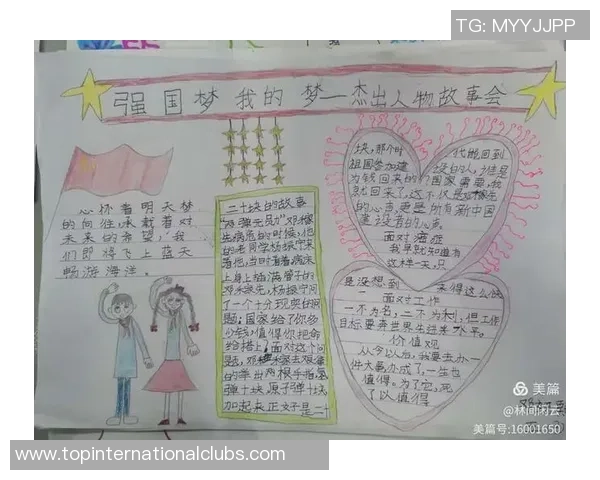 TG: MYYJJPP
强国梦 我的梦—杰出人物故事会
心怀着明天梦
的向往,承载着对
未来的希望,我
们即将飞上蓝天
畅游海洋。
二十块的故事
"两弹元勋"邓稼先
生病危的时候,他
的老同学杨振宁来
看他,当时看着病床
上身上插满管子的
邓稼先,杨振宁问
了一个十分现实的问
题:国家给了你多
少钱,值得你把命
给搭上?面对这个问
题,邓稼先
的举出两根手指:氢
弹十块,原子弹十块
加起来正好是二十
块,那个时代能回到
祖国参加建设的人,谁是
为钱回来的?国家需要,我
就回来了,这不仅是邓稼先
的心声,更是所有新中国
建设者的心声
面对癌症
我早就知道有
这样一天,只
是没想到来得这么快
面对工作
一不为名,二不为利,但工作
目标要奔世界先进水平。
价值观
从今以后,我要去办一
件大事,办成了,一生也
值得。为了它,死
了以值得
美篇
@林间闲云
美篇号:16001650
www.topinternationalclubs.com